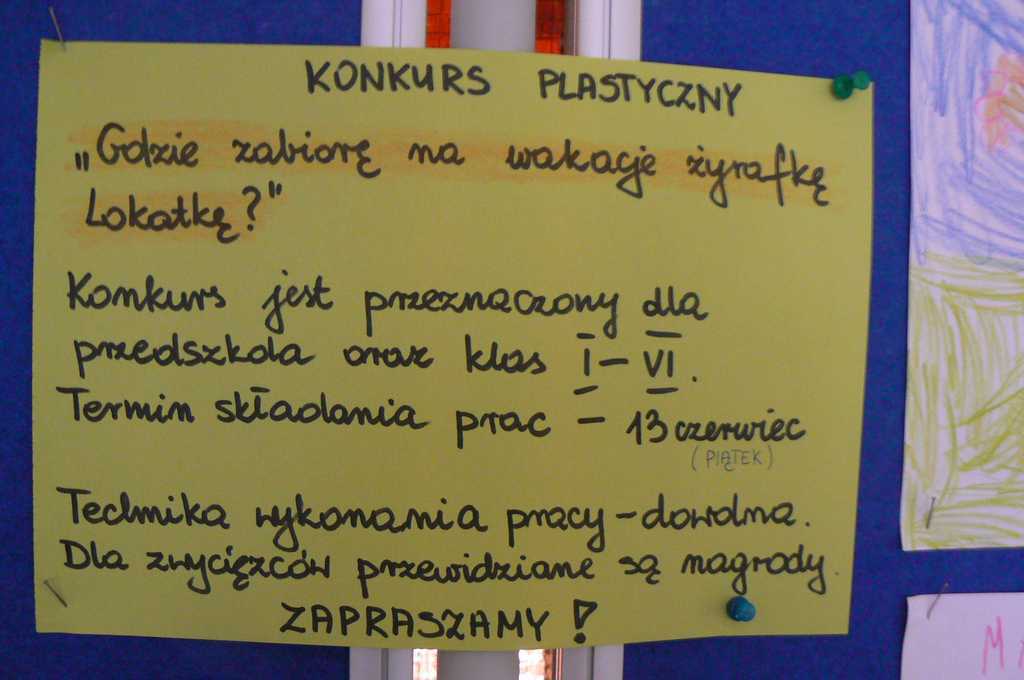 KONKURS PLASTYCZNY
„Gdzie zabiorę na wakacje żyrafkę
Lokatkę?"
Konkurs jest przeznaczony dla
przedszkola oraz klas I – VI.
Termin składania prac – 13 czerwiec
(PIĄTEK)
Technika wykonania pracy – dowolna.
Dla zwycięzców przewidziane są nagrody.
ZAPRASZAMY!